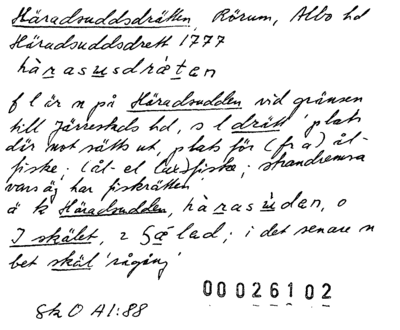 Häradsuddsdrätten, Rörum, Albo hd
Häradsuddsdrett 1777
hàrasusdrǽtan
f l är n på Häradsudden vid gränsen
till Järrestads hd, s l drätt 'plats
där not sätts ut, plats för (fr a) ål-
fiske; (ål- el lax)fiske; strandremsa
vars äg har fiskrätten'
ä k Häradsudden, hàrasùdan, o
I skälet, 2 Sǽlad; i det senare n
bet skäl 'rågång'
00026102
Sk O A1:88